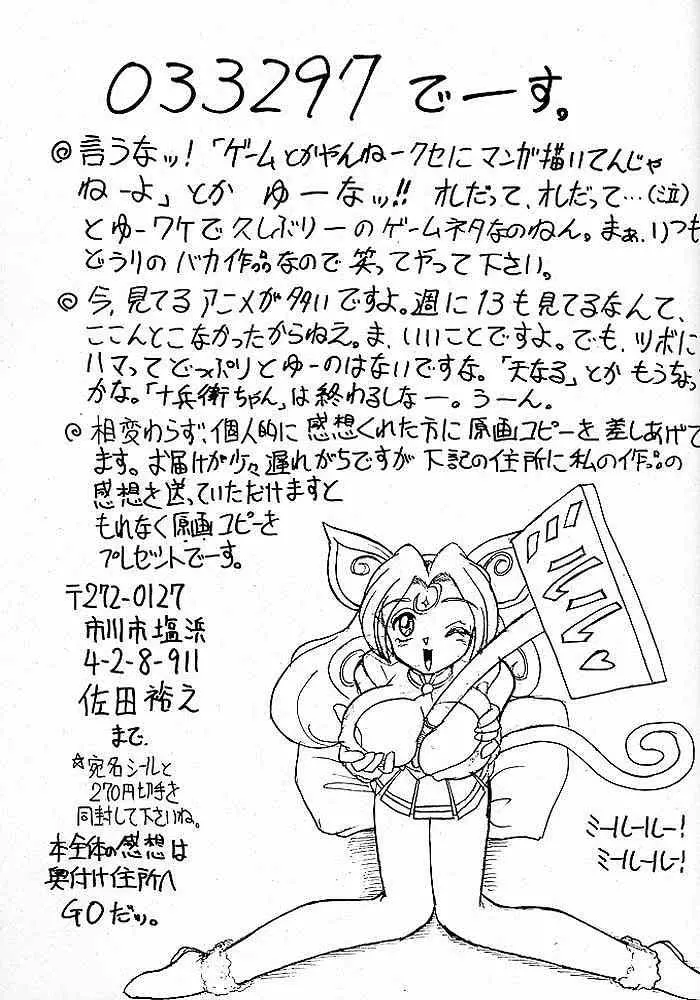 033297 でーす。
◎言うなッ!「ゲームとかやんねークセにマンガ描いてんじゃ
ねーよ」とか ゆーなッ!! オレだって、オレだって…(泣)
とゆーワケで久しぶりーのゲームネタなのねん。まぁ、いつも
どうりのバカ作品なので笑ってやって下さい。
◎今、見てるアニメが多いですよ。週に13も見てるなんて、
ここんとこなかったからねえ。ま、いいことですよ。でも、ツボに
ハマってどっぷりとゆーのはないですな。「天なる」とかもうちょい
かな。「十兵衛ちゃん」は終わるしなー。うーん。
◎相変わらず、個人的に感想くれた方に原画コピーを差しあげて
ます。お届けが少々遅れがちですが下記の住所に私の作品の
感想を送っていただけますと
もれなく原画コピーを
プレゼントでーす。
〒272-0127
市川市塩浜
4-2-8-911
佐田裕之
まで。
☆宛名シールと
270円切手を
同封して下さいね。
本全体の感想は
奥付け住所へ
GOだッ。
ドルルル♡
ミールールー!
ミールルー!